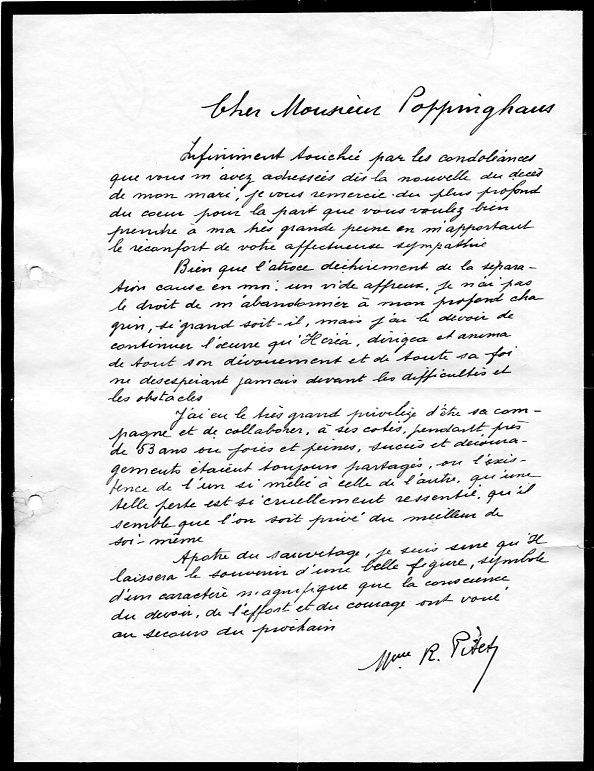 Cher Monsieur Poppinghaus
Infiniment touchée par les condoléances
que vous m'avez adressées dès la nouvelle du decès
de mon mari, je vous remercie du plus profond
du coeur pour la part que vous voulez bien
prendre à ma très grande peine en m'apportant
le réconfort de votre affectueuse sympathie
Bien que l'atroce déchirement de la sépara-
tion cause en moi un vide affreux, je n'ai pas
le droit de m'abandonner à mon profond cha
grin, si grand soit-il, mais j'ai le devoir de
continuer l'œuvre qu'Il créa, dirigea et anima
de tout son dévouement et de toute sa foi
ne desespérant jamais devant les difficultés et
les obstacles
J'ai eu le très grand privilège d'être sa com-
pagne et de collaborer, à ses cotés, pendant près
de 53 ans ou joies et peines, succès et découra-
gements étaient toujours partagés, ou l'exis-
tence de l'un si mêlée à celle de l'autre, qu'une
telle perte est si cruellement ressentie, qu'il
semble que l'on soit privé du meilleur de
soi-même
Apotre du sauvetage, je suis sure qu'Il
laissera le souvenir d'une belle figure, symbole
d'un caractère magnifique que la conscience
du devoir, de l'effort et du courage ont voué
au secours du prochain
Mme R. Pitet